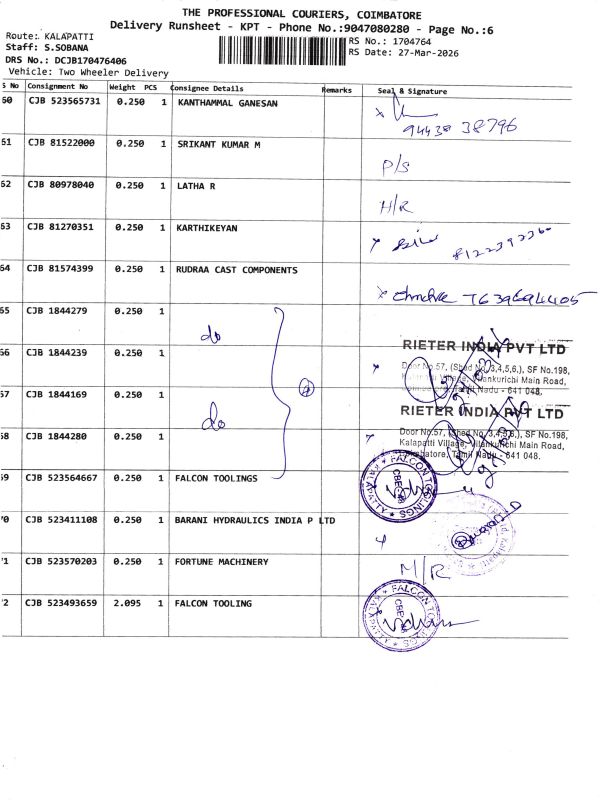 THE PROFESSIONAL COURIERS, COIMBATORE
Delivery Runsheet - KPT - Phone No.:9047080280 - Page No.:6
Route: KALAPATTI
Staff: S.SOBANA
DRS No.: DCJB170476406
Vehicle: Two Wheeler Delivery
RS No.: 1704764
RS Date: 27-Mar-2026
S No Consignment No Weight PCS Consignee Details Remarks Seal & Signature
60 CJB 523565731 0.250 1 KANTHAMMAL GANESAN
94438 38796
61 CJB 81522000 0.250 1 SRIKANT KUMAR M P/S
62 CJB 80978040 0.250 1 LATHA R H/R
63 CJB 81270351 0.250 1 KARTHIKEYAN
64 CJB 81574399 0.250 1 RUDRAA CAST COMPONENTS
65 CJB 1844279 0.250 1 do
RIETER INDIA PVT LTD
66 CJB 1844239 0.250 1
Door No.57, (Shed No.3,4,5,6,), SF No.198,
Kalapatti Village, Vilankurichi Main Road,
Coimbatore, Tamil Nadu - 641 048.
67 CJB 1844169 0.250 1 do
RIETER INDIA PVT LTD
68 CJB 1844280 0.250 1
Door No.57, (Shed No.3,4,5,6,), SF No.198,
Kalapatti Village, Vilankurichi Main Road,
Coimbatore, Tamil Nadu - 641 048.
69 CJB 523564667 0.250 1 FALCON TOOLINGS
FALCON TOOLINGS KALAPATTY CBE
70 CJB 523411108 0.250 1 BARANI HYDRAULICS INDIA P LTD
71 CJB 523570203 0.250 1 FORTUNE MACHINERY M/R
72 CJB 523493659 2.095 1 FALCON TOOLING
FALCON TOOLINGS KALAPATTY CBE